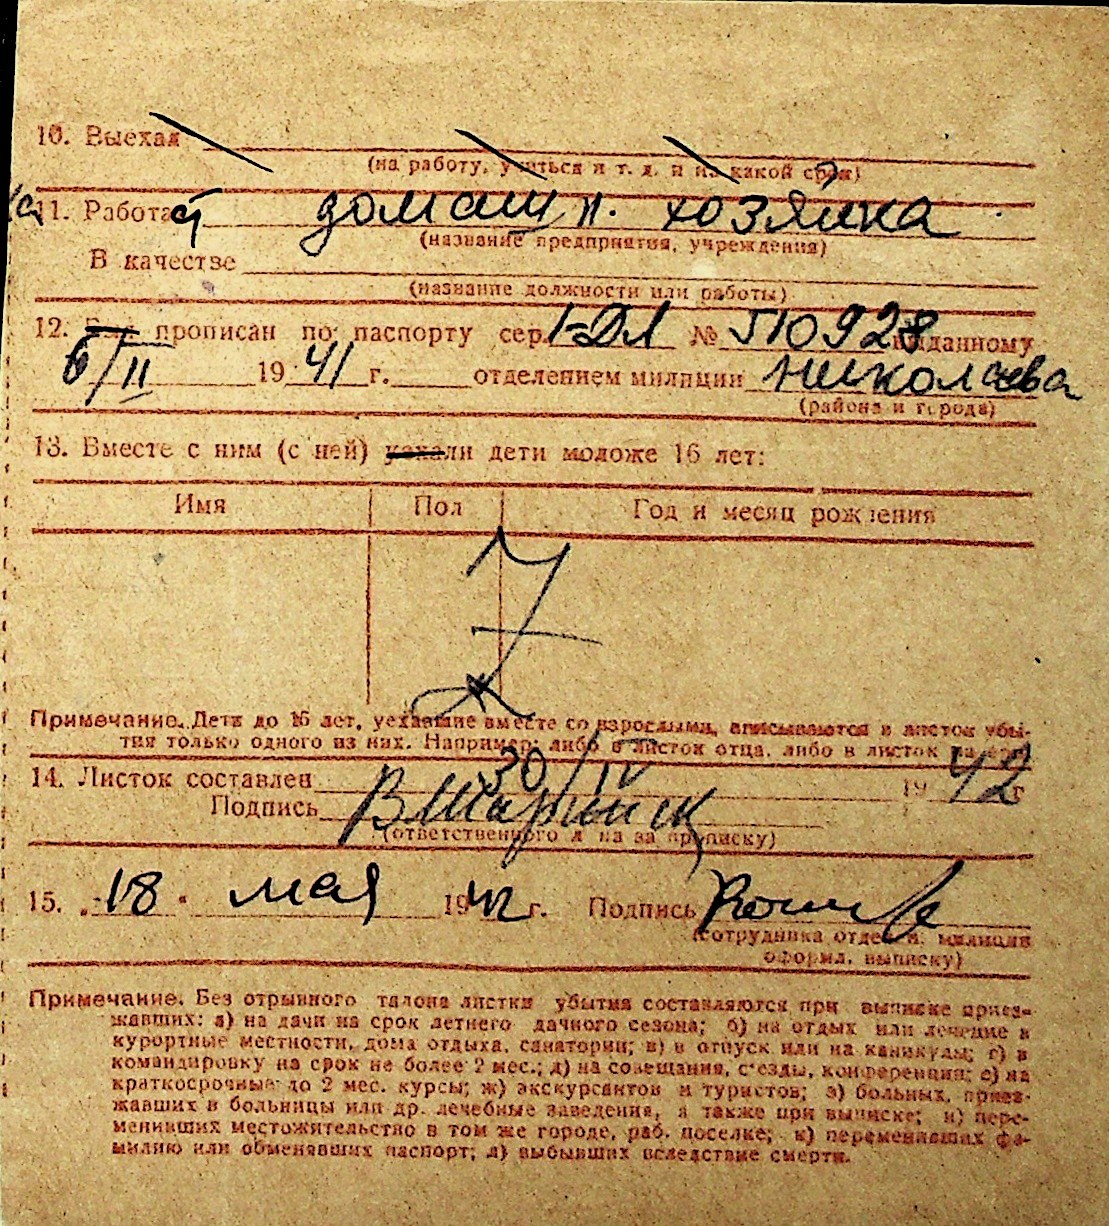 10. Выехал
(на работу, учиться и т. д. и на какой срок)
11. Работает домашн. хозяйка
(название предприятия, учреждения)
В качестве
(название должности или работы)
12. Был прописан по паспорту сер. I-ДЛ № 510928 выданному
6/II 1941 г. отделением милиции Николаева
(района и города)
13. Вместе с ним (с ней) уехали дети моложе 16 лет:
Имя Пол Год и месяц рождения
Z
Примечание. Дети до 16 лет, уехавшие вместе со взрослыми, вписываются в листок убы-
тия только одного из них. Например: либо в листок отца, либо в листок матери
14. Листок составлен 30/IV 1942 г
Подпись
(ответственного л на за прописку)
15. „18" мая 1942 г. Подпись
(сотрудника отдел н. милиции
оформл. выписку)
Примечание. Без отрывного талона листки убытия составляются при выписке приез-
жавших: а) на дачи на срок летнего дачного сезона; б) на отдых или лечение в
курортные местности, дома отдыха, санатории; в) в отпуск или на каникулы; г) в
командировку на срок не более 2 мес.; д) на совещания, съезды, конференции; е) на
краткосрочные до 2 мес. курсы; ж) экскурсантов и туристов; з) больных, приез-
жавших в больницы или др. лечебные заведения, а также при выписке; и) пере-
менивших местожительство в том же городе, раб. поселке; к) переменивших фа-
милию или обменявших паспорт; л) выбывших вследствие смерти.